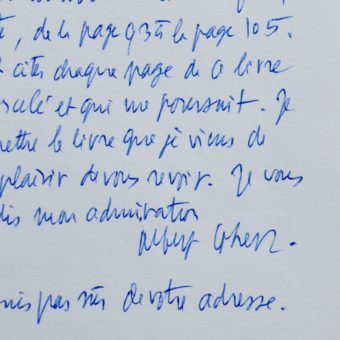 , de la page 93 à la page 105.
citer chaque page de ce livre
scelé et qui me poursuit. Je
mettre le livre que je viens de
plaisir de vous revoir. Je vous
dis mon admiration
Albert Cohen.
suis pas sûr de votre adresse.